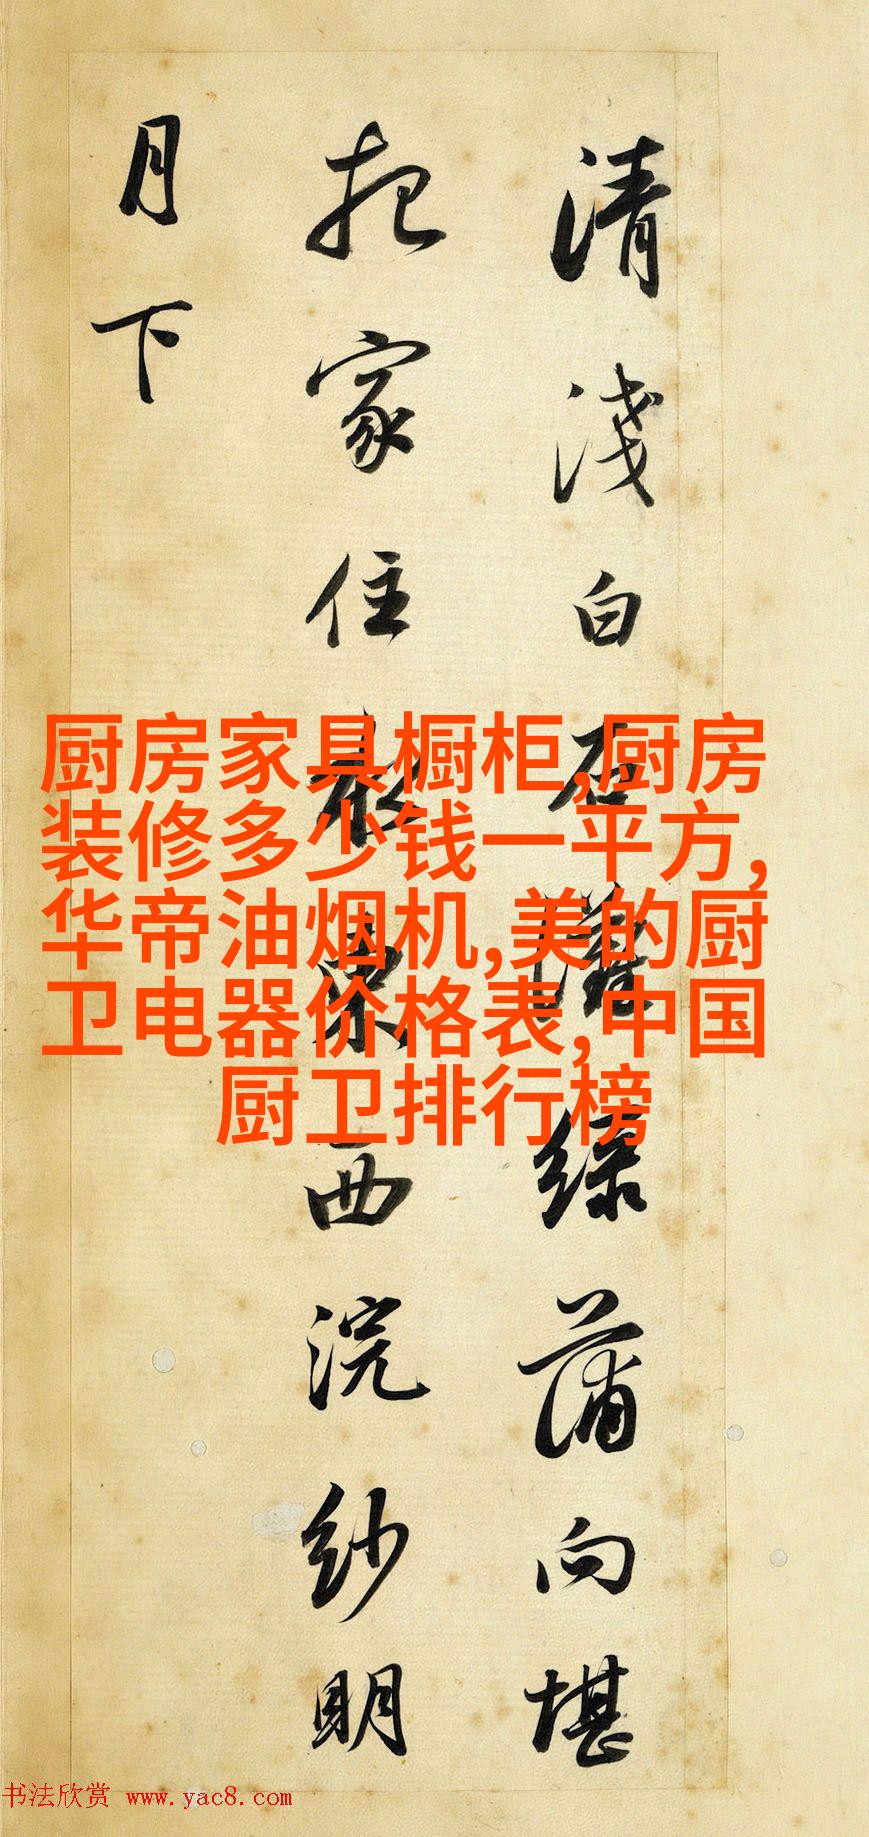 清淺白石灘綠蒲向堪
把家住東西浣紗明
月下
厨房家具橱柜,厨房
装修多少钱一平方,
华帝油烟机,美的厨
卫电器价格表,中国
厨卫排行榜
书法欣赏 www.yac8.com